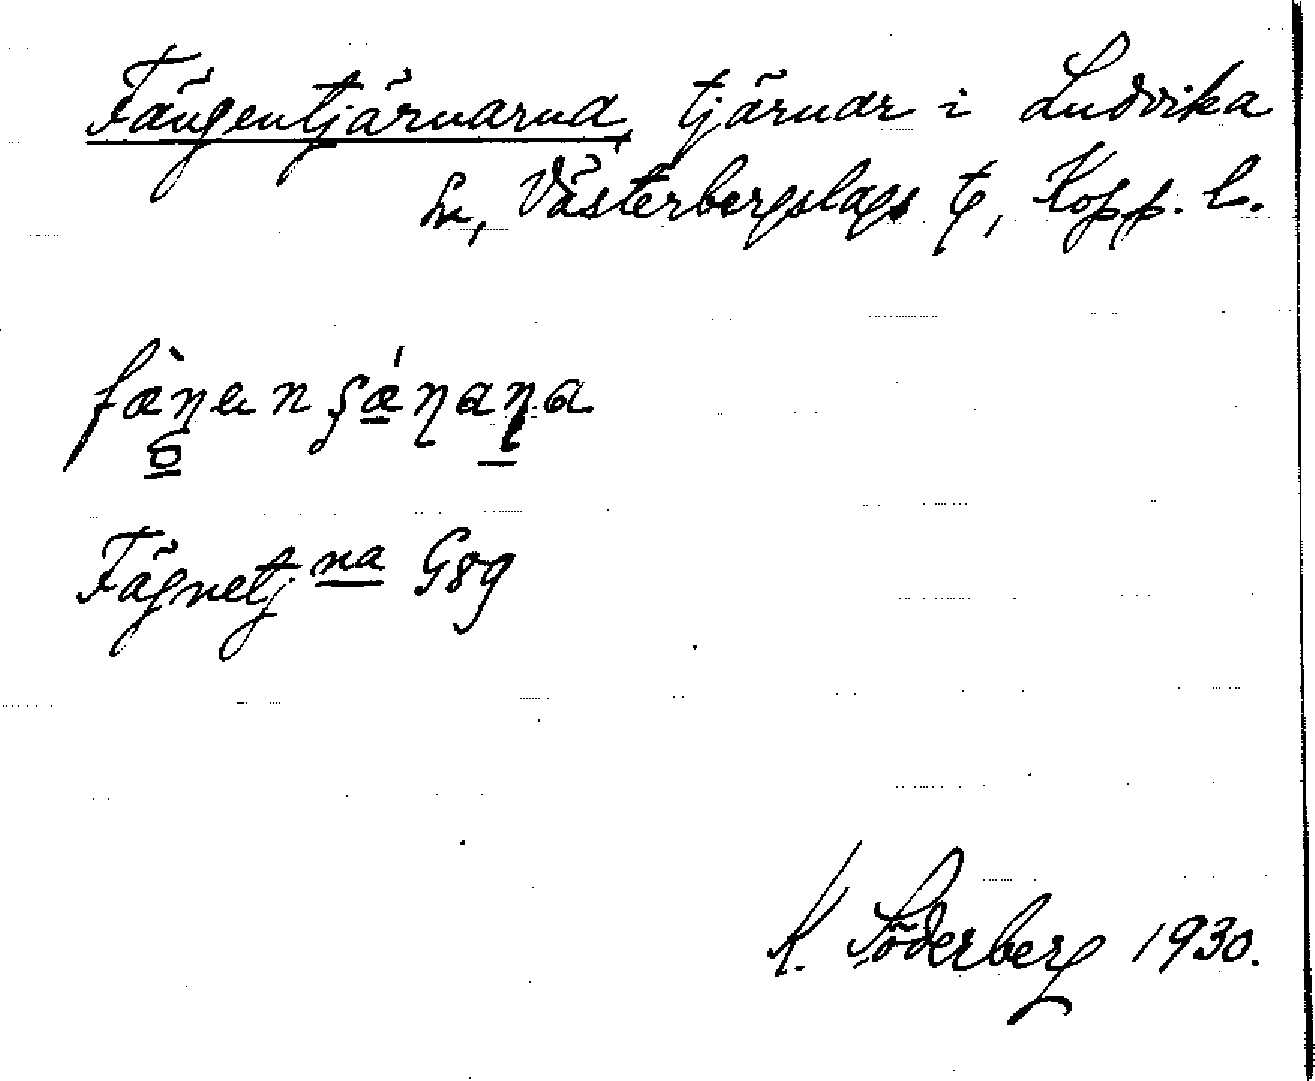 Fängentjärnarna, tjärnar i Ludvika
sn, Västerbergslags tg, Kopp. l.
Fägnetjna G89
K. Söderberg 1930.